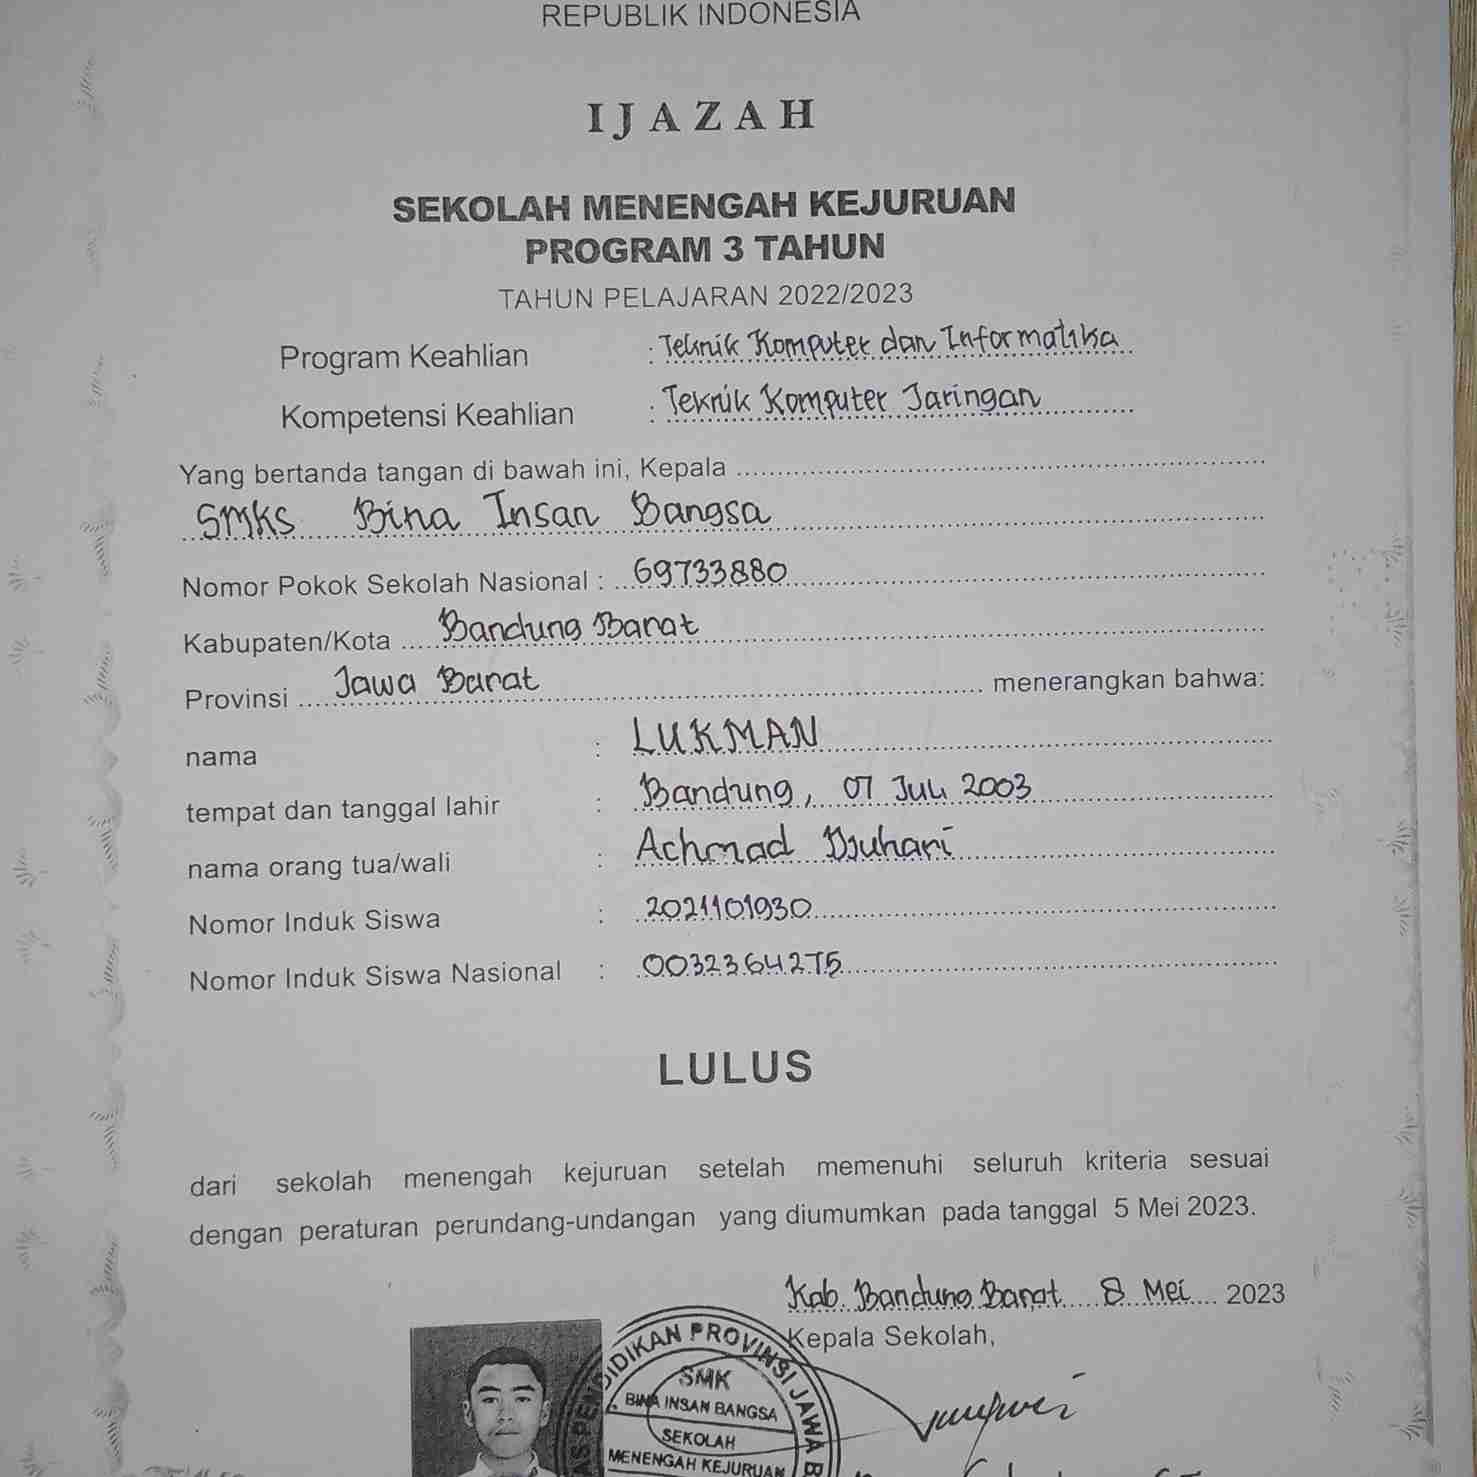 REPUBLIK INDONESIA
IJAZAH
SEKOLAH MENENGAH KEJURUAN
PROGRAM 3 TAHUN
TAHUN PELAJARAN 2022/2023
Program Keahlian : Teknik Komputer dan Informatika
Kompetensi Keahlian : Teknik Komputer Jaringan
Yang bertanda tangan di bawah ini, Kepala
SMKS Bina Insan Bangsa
Nomor Pokok Sekolah Nasional : 69733880
Kabupaten/Kota Bandung Barat
Provinsi Jawa Barat menerangkan bahwa:
nama : LUKMAN
tempat dan tanggal lahir : Bandung, 07 Juli 2003
nama orang tua/wali : Achmad Djuhari
Nomor Induk Siswa : 2021101930
Nomor Induk Siswa Nasional : 0032364275
LULUS
dari sekolah menengah kejuruan setelah memenuhi seluruh kriteria sesuai
dengan peraturan perundang-undangan yang diumumkan pada tanggal 5 Mei 2023.
Kab. Bandung Barat 8 Mei 2023
Kepala Sekolah,
PROVINSI JAWA
SMK
BINA INSAN BANGSA
SEKOLAH
MENENGAH KEJURUAN